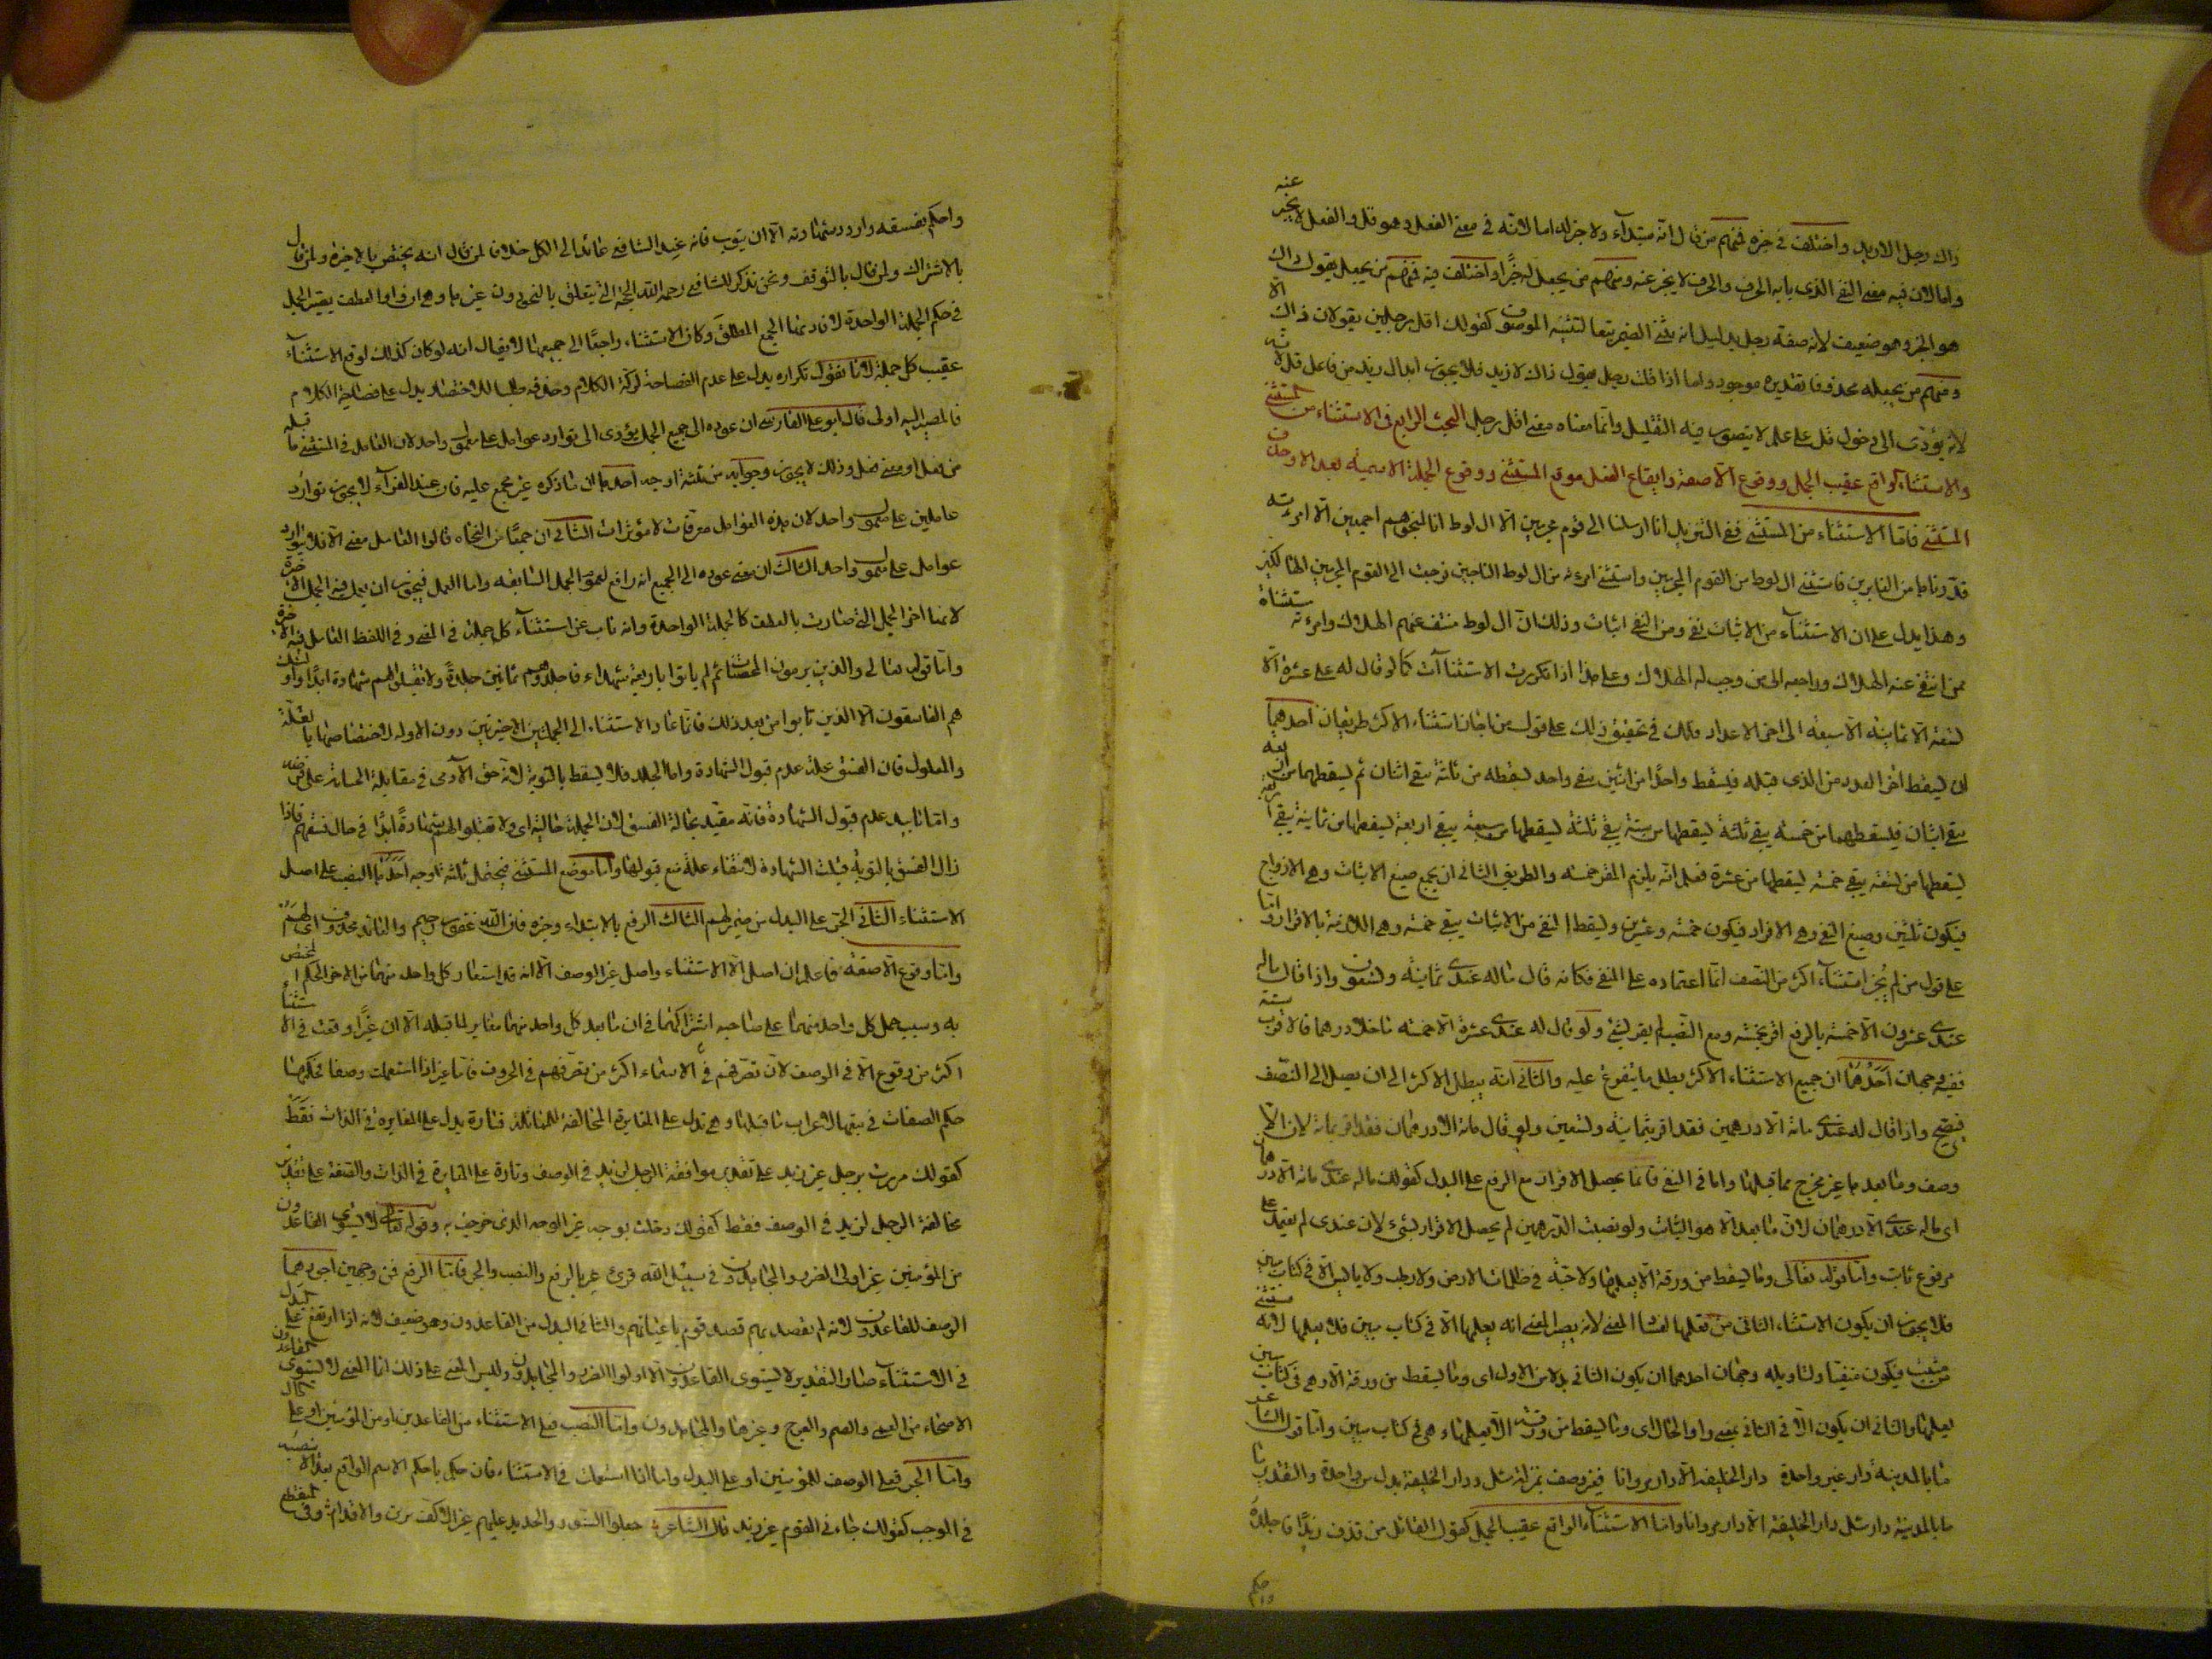 ذاك رجل الا زيد واختلف في خبره فمنهم من قال انه مبتدأ ولا خبر له اما لانه في معنى الفعل وهو قل والفعل لا يخبر عنه
واما لان فيه معنى النفي الذي بابه الحرف والحرف لا يخبر عنه ومنهم من يجعل له خبرًا واختلف فيه فمنهم من يجعل يقول ذاك
هو الخبر وهو ضعيف لانه صفة رجل بدليل انه يثنى الضمير تبعا لتثنية الموصوف كقولك اقل رجلين يقولان ذاك الا
ومنهم من يجعله محذوفا تقديره موجود واما اذا قلت رجل يقول ذاك الا زيد فلا يجوز ابدال زيد من فاعل قل لا
لانه يؤدى الى دخول قل على علم لا يتصور فيه التقليل وانما معناه معنى اقل رجل البحث الرابع في الاستثناء من المستثنى
والاستثناء الواقع عقيب الجمل ووقوع الا صفة وايقاع الفعل موقع المستثنى ووقوع الجملة الاسمية بعد الا وحذف
المستثنى فاما الاستثناء من المستثنى ففي التنزيل انا ارسلنا الى قوم مجرمين الا ال لوط انا لمنجوهم اجمعين الا امرءته
قدرنا انها من الغابرين فاستثنى ال لوط من القوم المجرمين واستثنى امرءته من ال لوط الناجين فرجعت الى القوم المجرمين الهالكين
وهذا يدل على ان الاستثناء من الاثبات نفي ومن النفي اثبات وذلك ان ال لوط منتف عنهم الهلاك وامرءته مستثناة
ممن انتفى عنه الهلاك وراجعه الى من وجب له الهلاك وعلى هذا اذا تكررت الاستثناآت كما لو قال له على عشرة الا
تسعة الا ثمانية الا سبعة الى اخر الاعداد فلك في تحقيق ذلك على قول من اجاز استثناء الاكثر طريقان احدهما
ان يسقط اخر العدد من الذى قبله فيسقط واحدًا من اثنين يبقى واحد يسقطه من ثلثة يبقى اثنان ثم يسقطهما من اربعة
يبقى اثنان فيسقطهما من خمسة يبقى ثلثة يسقطها من ستة يبقى ثلثة يسقطها من سبعة يبقى اربعة يسقطها من ثمانية يبقى اربعة
يسقطها من تسعة يبقى خمسة يسقطها من عشرة فعلم انه يلزم المقر خمسة والطريق الثانى ان يجمع صيغ الاثبات وهى الازواج
فيكون ثلثين وصيغ النفي وهى الافراد فيكون خمسة وعشرين ويسقط النفي من الاثبات يبقى خمسة وهى اللازمة بالاقرار واما
على قول من لم يجز استثناء اكثر من النصف انما اعتماده على النفي فكانه قال ماله عندى ثمانية وتسعون واذا قال ماله
عندى عشرون الا خمسة بالرفع اقر بخمسة ومع النصب لم يقر بشئ ولو قال له عندى عشرة الا خمسة ماخلا درهما فالاقرب ستة
ففيه وجهان احدهما ان جميع الاستثناء الاكثر يبطل ما يتفرع عليه والثانى انه يبطل الاكثر الى ان يصل الى النصف
فيصح واذا قال له عندى مائة الا درهمين فقد اقر بثمانية وتسعين ولو قال مائة الا درهمان فقد اقر بمائة لان الا
وصف وما بعدها غير مخرج مما قبلها واما في النفي فانما يحصل الاقرار مع الرفع على البدل كقولك ماله عندى مائة الا درهمان
اى ماله عندى الا درهمان لان ما بعد الا هو الثابت ولو نصبت الدرهمين لم يحصل الاقرار بشئ لان عندى لم يعتمد على
مرفوع ثابت واما قوله تعالى وما يسقط من ورقة الا يعلمها ولا حبة في ظلمات الارض ولا رطب ولا يابس الا في كتاب مبين
فلا يجوز ان يكون الاستثناء الثانى من يعلمها لفساد المعنى لانه يصير المعنى انه يعلمها الا في كتاب مبين فلا يعلمها لانه مستثنى
من مثبت فيكون منفيا ولتاويله وجهان احدهما ان يكون الثانى بدلا من الاول اى وما يسقط من ورقة الا هى في كتاب مبين
يعلمها والثانى ان يكون الا في الثانى بمعنى واو الحال اى وما يسقط من ورقة الا يعلمها وهى في كتاب مبين واما قول الشاعر
ما بالمدينة دار غير واحدة دار الخليفة الا دار مروانا فغير وصف بمنزلة مثل ودار الخليفة بدل من واحدة والتقدير ما
ما بالمدينة دار مثل دار الخليفة الا دار مروانا واما الاستثناء الواقع عقيب الجمل كقول القائل من قذف زيدًا فاجلده
واحكم
واحكم بفسقه واردد شهادته الا ان يتوب فانه عند الشافعي عائد الى الكل خلافا لمن قال انه يختص بالاخيرة ولمن قال
بالاشتراك ولمن قال بالتوقف ونحن نذكر للشافعي رحمه الله الحجة التى يتعلق بالنحو دون غيرها وهى ان واو العطف يصير الجمل
في حكم الجملة الواحدة لافادتها الجمع المطلق وكان الاستثناء راجعًا الى جميعها لا يقال انه لو كان كذلك لوقع الاستثناء
عقيب كل جملة لانا نقول تكراره يدل على عدم الفصاحة لركة الكلام وحذفه طلبا للاختصار يدل على فصاحة الكلام
فالمصير اليه اولى قال ابو على الفارسى ان عوده الى جميع الجمل يؤدى الى توارد عوامل على معمول واحد لان العامل في المستثنى ما قبله
من فعل او معنى فعل وذلك لا يجوز وجوابه من ثلثة اوجه احدها ان ما ذكره غير مجمع عليه فان عند الفراء لا يجوز توارد
عاملين على معمول واحد لان هذه العوامل معرفات لا مؤثرات الثانى ان جمعًا من النحاة قالوا العامل معنى الا فلا يتوارد
عوامل على معمول واحد الثالث ان معنى عوده الى الجميع انه رافع لعموم الجمل السابقة واما العمل فيجوز ان يعمل فيه الجمل الاخيرة
لانها اخر الجمل التى صارت بالعطف كالجملة الواحدة وانه ناب عن استثناء كل جملة في المعنى وفي اللفظ العامل فيه الاخيرة
واما قوله تعالى والذين يرمون المحصنات ثم لم ياتوا باربعة شهداء فاجلدوهم ثمانين جلدةً ولا تقبلوا لهم شهادة ابدًا واولئك
هم الفاسقون الا الذين تابوا من بعد ذلك فانما عاد الاستثناء الى الجملتين الاخيرتين دون الاولى لاختصاصها بالعلة
والمعلول فان الفسق علة عدم قبول الشهادة واما الجلد فلا يسقط بالتوبة لانه حق الآدمى في مقابلة الجناية على عرضه
واما تابيد عدم قبول الشهادة فانه مقيد بحالة الفسق لان الجملة حالية اى ولا تقبلوا لهم شهادةً ابدًا في حال فسقهم فاذا
زال الفسق بالتوبة قبلت الشهادة لانتفاء علة منع قبولها واما موضع المستثنى فيحتمل ثلثة اوجه احدها النصب على اصل
الاستثناء الثانى الجر على البدل من ضمير لهم الثالث الرفع بالابتداء وخبره فان الله غفور رحيم والعائد محذوف اى لهم
واما وقوع الا صفة فاعلم ان اصل الا الاستثناء واصل غير الوصف الا انه قد استعار كل واحد منهما من الاخر الحكم المختص
به وسبب حمل كل واحد منهما على صاحبه اشتراكهما في ان ما بعد كل واحد منهما مغاير لما قبله الا ان غيرًا وقعت في الاستثناء
اكثر من وقوع الا في الوصف لان تصرفهم في الاسماء اكثر من تصرفهم في الحروف فاما غير اذا استعملت وصفا فحكمها
حكم الصفات في تبعها لاعراب ما قبلها وهى تدل على المغايرة المخالفة للمماثلة فتارة يدل على المغايرة في الذات فقط
كقولك مررت برجل غير زيد على تقدير موافقة الرجل لزيد في الوصف وتارة على المغايرة في الذات والصفة على تقدير
مخالفة الرجل لزيد في الوصف فقط كقولك دخلت بوجه غير الوجه الذى خرجت به وقوله تعالى لا يستوى القاعدون
من المؤمنين غير اولى الضرر والمجاهدون في سبيل الله قرئ غير بالرفع والنصب والجر فاما الرفع فمن وجهين اجودهما
الوصف للقاعدون لانه لم يقصد بهم قصد قوم باعيانهم والثانى البدل من القاعدون وهو ضعيف لانه اذا ارتفع على البدل
في الاستثناء صار التقدير لا يستوى القاعدون الا اولوا الضرر والمجاهدون وليس المعنى على ذلك انما المعنى لا يستوى القاعدون
الاصحاء من العمى والصم والعرج وغيرها والمجاهدون واما النصب فعلى الاستثناء من القاعدين او من المؤمنين او على الحال
واما الجر فعلى الوصف للمؤمنين او على البدل واما اذا استعملت في الاستثناء فان حكمها حكم الاسم الواقع بعد الا بنصبه
في الموجب كقولك جاءنى القوم غير زيد قال الشاعر جعلوا السنور والحديد عليهم غير الاكف برزن والاقدام وفي المنقطع